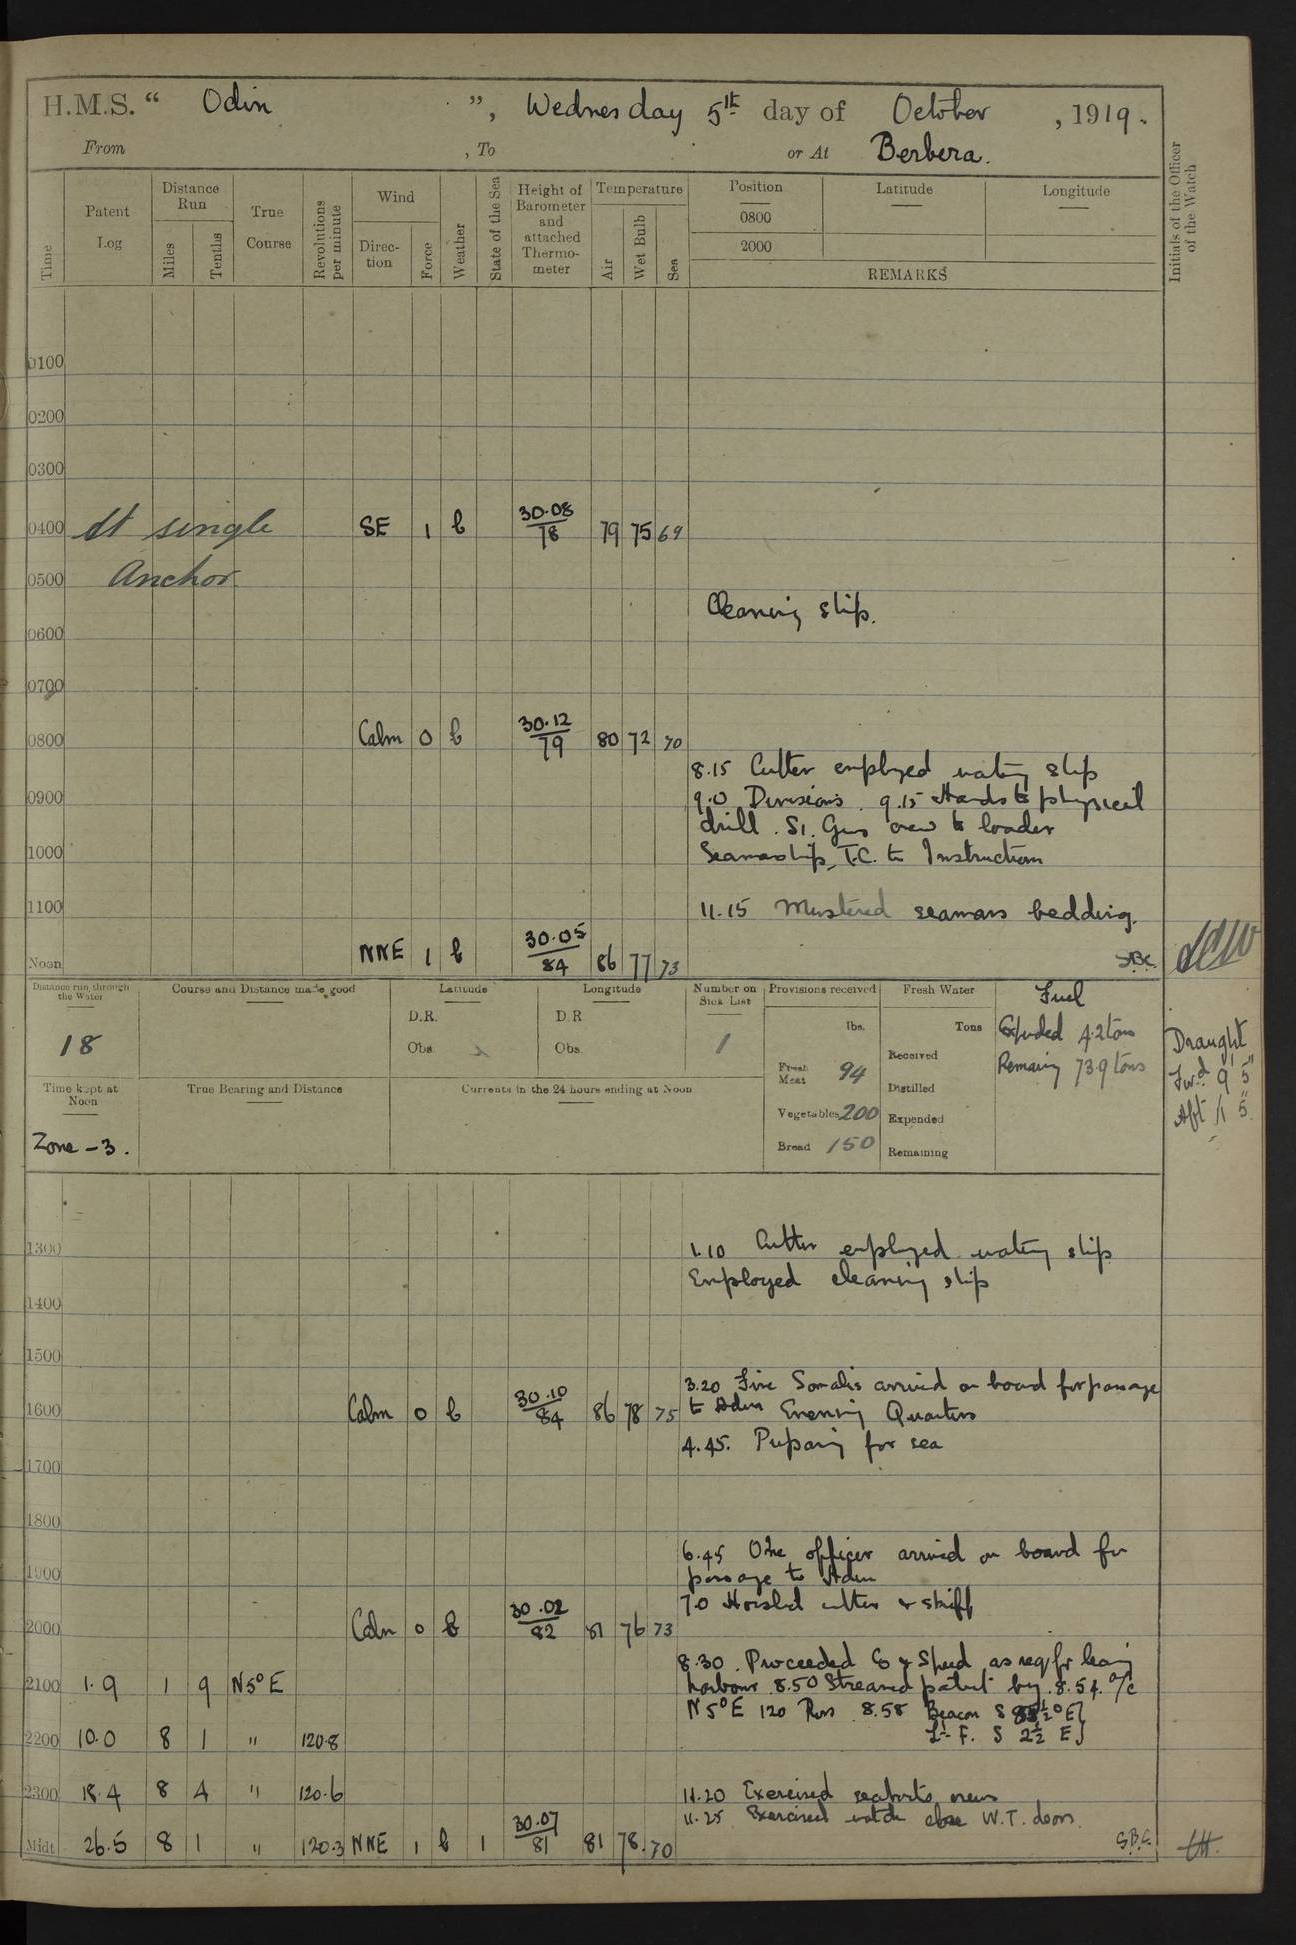 H.M.S. “ Odin ”, Wednesday 5th day of October , 1919.
From , To or At Berbera.
Time
Patent Log
Distance Run
Miles
Tenths
True Course
Revolutions per minute
Wind
Direction
Force
Weather
State of the Sea
Height of Barometer and attached Thermometer
Temperature
Air
Wet Bulb
Sea
Position
Latitude
Longitude
0800
2000
REMARKS
Initials of the Officer of the Watch
0100
0200
0300
0400 At single SE 1 b 30.08/78 79 75 69
0500 Anchor
Cleaning ship.
0600
0700
0800 Calm 0 b 30.12/79 80 72 70
8.15 Cutter employed watering ship
0900 9.0 Divisions. 9.15 Hands to physical
drill. S1. Guns crew to loader
1000 Seamanship, T.C. to Instruction
1100 11.15 Mustered seamans bedding.
Noon NNE 1 b 30.05/84 86 77 73 SBC.
Distance run through the Water
18
Course and Distance made good
Latitude
D.R.
Obs.
Longitude
D.R
Obs.
Number on Sick List
1
Provisions received
lbs.
Fresh Meat 94
Vegetables 200
Bread 150
Fresh Water
Tons
Received
Distilled
Expended
Remaining
Fuel
Expended 4.2 tons
Remaining 73.9 tons
Draught
Fwd 9' 5"
Aft 11' 5"
Time kept at Noon
Zone -3.
True Bearing and Distance
Currents in the 24 hours ending at Noon
1300 1.10 Cutter employed watering ship
Employed cleaning ship
1400
1500
3.20 Five Somalis arrived on board for passage
1600 Calm 0 b 30.10/84 86 78 75 to Aden Evening Quarters
4.45. Preparing for sea
1700
1800
6.45 One officer arrived on board for
1900 passage to Aden
7.0 Hoisted cutter & skiff
2000 Calm 0 b 30.02/82 81 76 73
8.30. Proceeded Co & Speed as req for leaving
2100 1.9 1 9 N5°E harbour 8.50 Streamed patent log. 8.54. a/c
N5°E 120 Revs 8.58 Beacon S 85½°E}
2200 10.0 8 1 " 120.8 Lt. F. S 2½ E}
2300 18.4 8 4 " 120.6 11.20 Exercised seaboats crew
11.25 Exercised watch close W.T. doors.
Midt 26.5 8 1 " 120.3 NNE 1 b 1 30.07/81 81 78. 70 S.B.C.